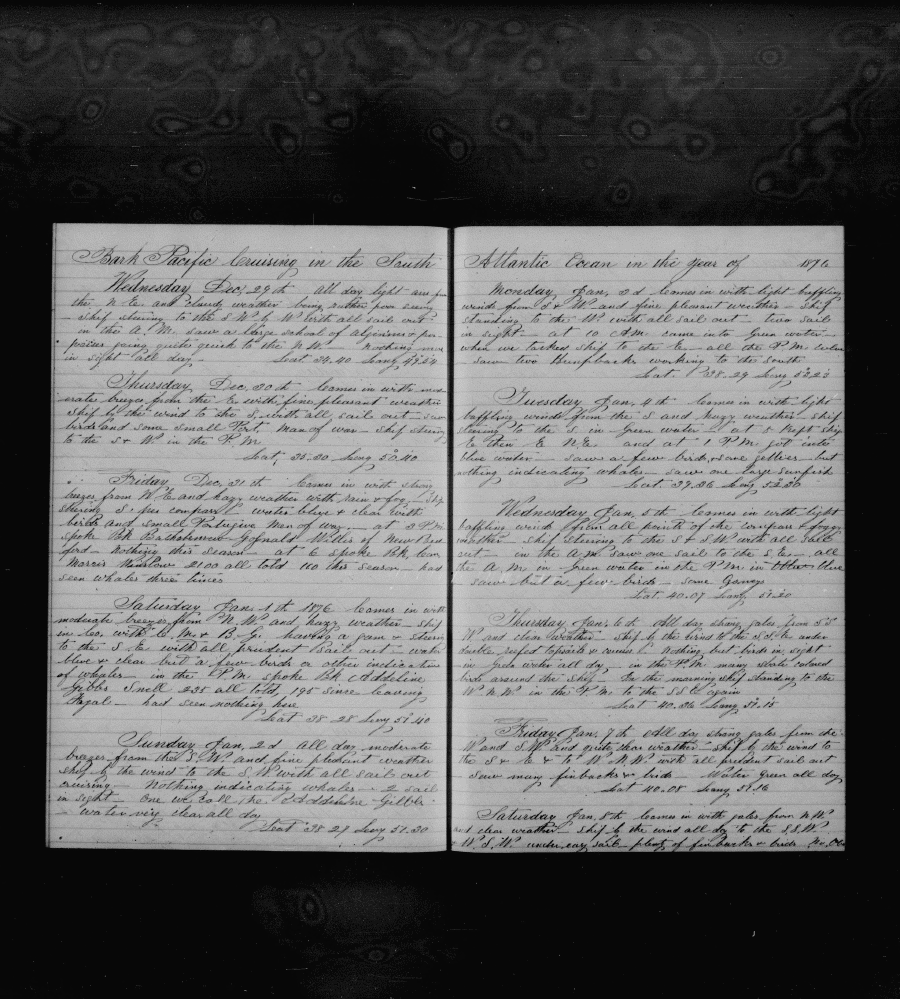 Bark Pacific Cruising in the South
Wednesday Dec, 29th all day light airs from
the N E. and cloudy weather being rather poor seeing
ship steering to the S W. by W with all sail out
in the A. M. saw a large school of algerines & por-
poises going quite quick to the N. W. nothing more
in sight all day Lat 34.40 Long
Thursday Dec, 30th Comes in with mod-
erate breezes from the E. with fine pleasant weather
ship by the wind to the S. with all sail out saw
birds and some small Port, man of war ship steering
to the S & W in the P. M.
Lat, 35.30 Long 50.40
Friday Dec, 31st Comes in with strong
breezes from N E and hazy weather with rain & fog Ship
steering S. per compass water blue & clear with
birds and small Portugise men of war at 2 P M
spoke Bk Bartholomew Gosnold Willis of New Bed
ford nothing this season at 6 spoke Bk,
Morris Winslow 2100 all told 110 this season had
seen whales three times
Saturday Jan, 1st 1876 Comes in with
moderate breezes from N. W. and hazy weather ship
in Co, with C. M. & B. G. having a gam & steering
to the S E with all prudent sail out water
blue & clear but a few birds or other indication
of whales in the P. M. spoke Bk Addeline
Gibbs Snell 235 all told, 195 since leaving
Fayal had seen nothing here
Lat 38 28 Long 51.40
Sunday Jan, 2d all day moderate
breezes from the S. W. and fine pleasant weather
ship by the wind to the S. W with all sail out
cruising Nothing indicating whales 2 sail
in sight One we call the Addeline Gibbs
water very clear all day
Lat 38 29 Long 51.30
Atlantic Ocean in the Year of 1876
Monday Jan, 3d Comes in with light baffling
winds from S & W and fine pleasant weather ship
standing to the W. with all sail out two sail
in sight at 10 A.M. came into Green water
when we tacked ship to the E all the P. M. blue
saw two finbacks working to the South
Lat 38.29 Long 52.23
Tuesday Jan, 4th Comes in with light
baffling winds from the S and hazy weather ship
steering to the S in Green water at 8 kept ship
E. then E N.E. and at 1 P.M. got into
blue water saw a few birds some jellies but
nothing indicating whales saw one large sunfish
Lat 39.26 Long 52.30
Wednesday Jan, 5th Comes in with light
baffling winds from all points of the compass & foggy
weather ship steering to the S & S.W with all sail
out in the A.M saw one sail to the S.E. all
the A.M in green water in the P.M in blue
saw but a few birds some
Lat 40.07 Long 51.20
Thursday Jan, 6th All day strong gales from S S
W and clear weather ship by the wind to the S.S.E. under
double reefed topsails & courses Nothing but birds in sight
in green water all day in the P.M. many slate colored
birds around the ship In the morning ship standing to the
W. N.W. in the P.M. to the S S E again
Lat 40.26 Long 51.15
Friday Jan, 7th All day strong gales from the
W and S.W and quite clear weather ship by the wind to
the S & E & to W N.W. with all prudent sail out
Saw many finbacks & birds Water Green all day
Lat 40.08 Long 51.16
Saturday Jan, 8th Comes in with gales from N.W
and clear weather Ship by the wind all day to the S.S.W
W.S.W. under easy sail plenty of finbacks & birds No, Obs